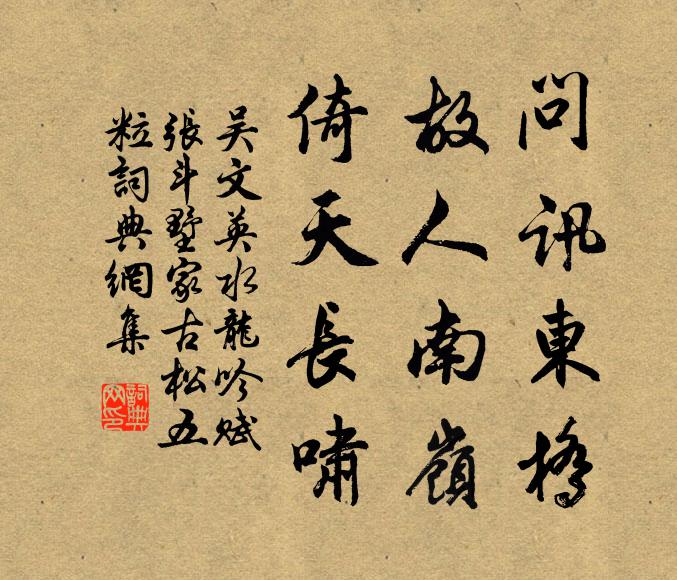 問訊東橋
故人南嶺
倚天長嘯
吴文英水龍吟賦
張斗墅家古松五
粒詞典網集
詞典網印